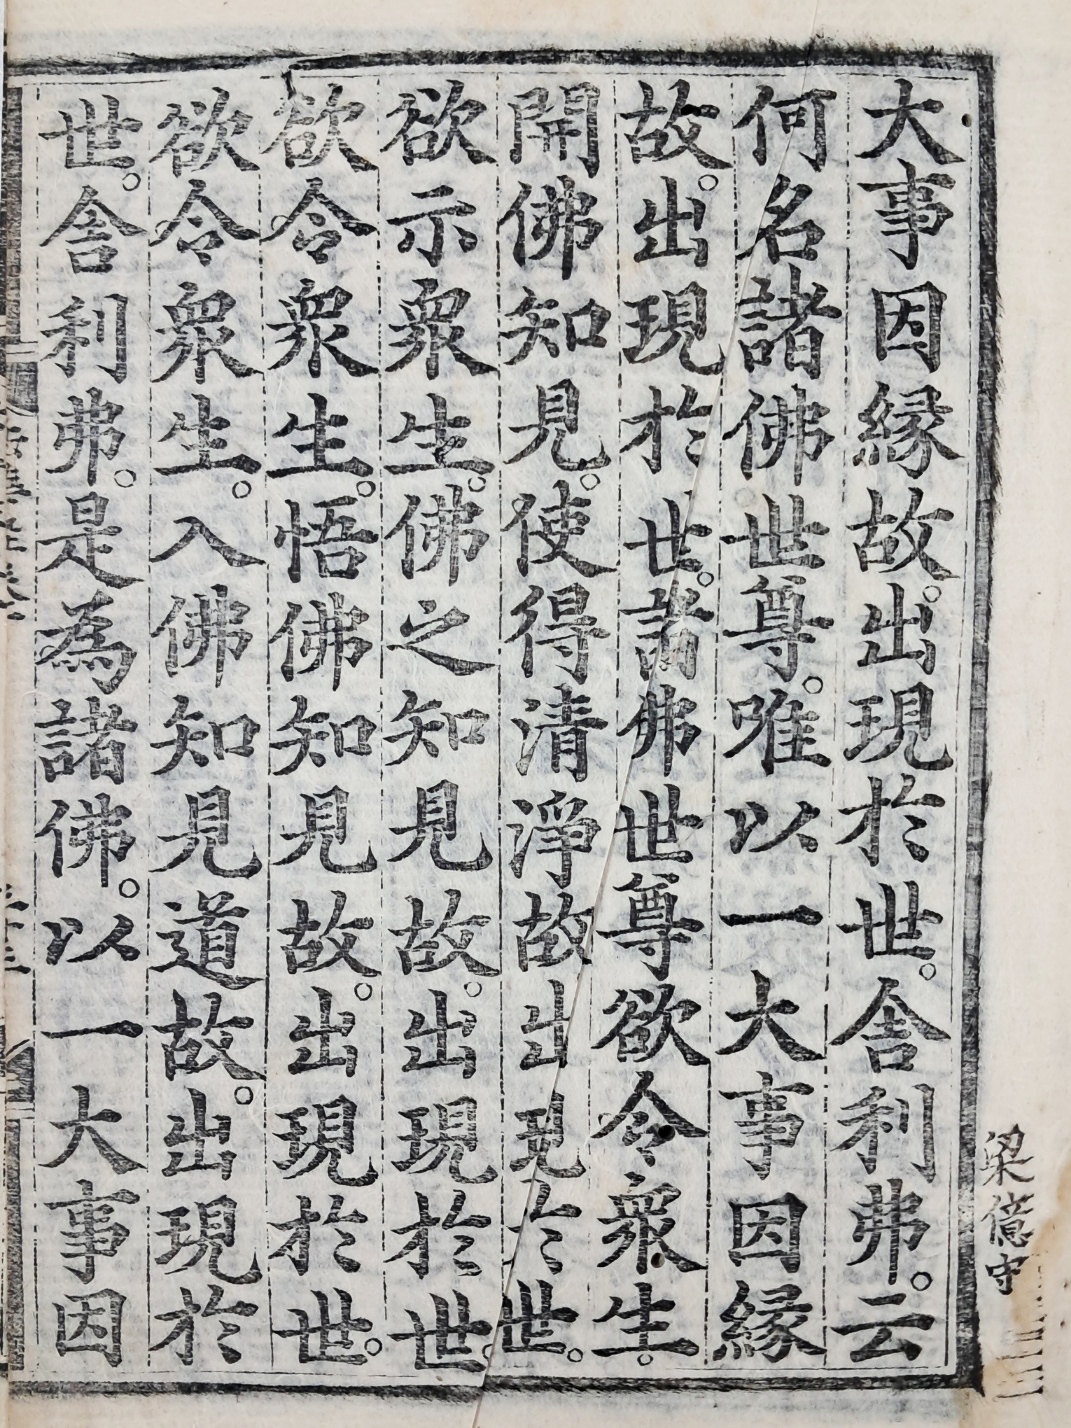 大事因緣故。出現於世。舍利弗。云
何名諸佛世尊。唯以一大事因緣
故。出現於世。諸佛世尊欲令眾生。
開佛知見。使得清淨故出現於世。
欲示眾生。佛之知見故。出現於世。
欲令眾生。悟佛知見故。出現於世。
欲令眾生。入佛知見道故。出現於
世。舍利弗。是為諸佛。以一大事因
梁億守